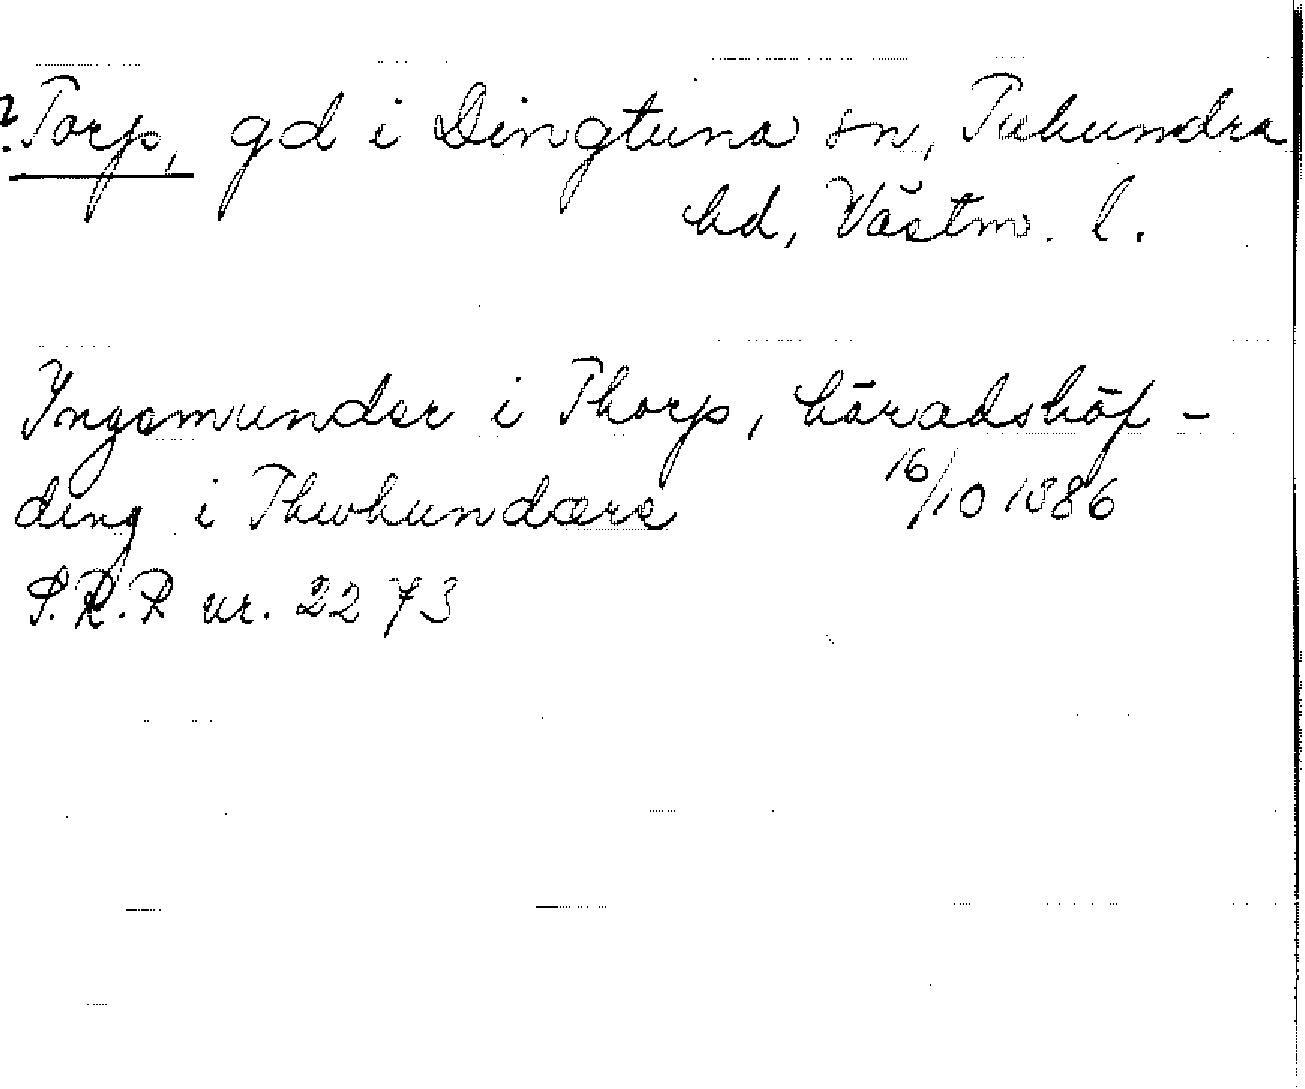 ? Torp, gd i Dingtuna sn, Tuhundra
hd, Västm. l.
Yngemunder i Thorp, häradshöf-
ding i Thwhundære 16/10 1386
S.R.P nr. 2273